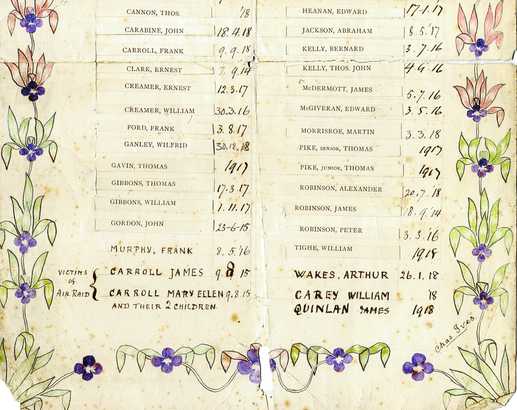 CANNON, THOS. '18
CARABINE, JOHN 18.4.18
CARROLL, FRANK 9.9.18
CLARK, ERNEST 7.9.14
CREAMER, ERNEST 12.3.17
CREAMER, WILLIAM 30.3.16
FORD, FRANK 3.8.17
GANLEY, WILFRID 30.12.18
GAVIN, THOMAS 1917
GIBBONS, THOMAS 17.3.17
GIBBONS, WILLIAM 1.11.17
GORDON, JOHN 23-6-15
MURPHY, FRANK 8.5.16
VICTIMS OF AIR RAID
CARROLL JAMES 9.8.15
CARROLL MARY ELLEN 9.8.15
AND THEIR 2 CHILDREN
HEANAN, EDWARD 17.1.17
JACKSON, ABRAHAM 8.5.17
KELLY, BERNARD 3.7.16
KELLY, THOS. JOHN 4.6.16
McDERMOTT, JAMES 5.7.16
McGIVERAN, EDWARD 3.5.16
MORRISROE, MARTIN 3.3.18
PIKE, SENIOR, THOMAS 1917
PIKE, JUNIOR, THOMAS 1917
ROBINSON, ALEXANDER 20.7.18
ROBINSON, JAMES 8.9.14
ROBINSON, PETER 3.3.16
TIGHE, WILLIAM 1918
WAKES, ARTHUR 26.1.18
CAREY WILLIAM 18
QUINLAN JAMES 1918
Chas. Ives